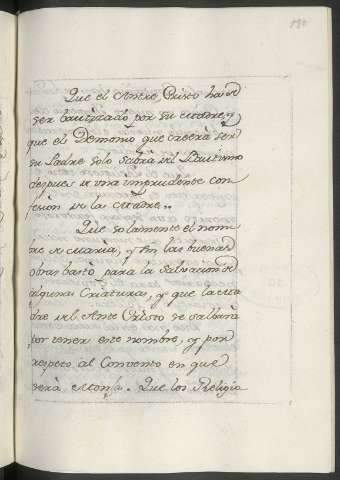 Que el Ante Cristo ha de
ser bautizado por su madre, y
que el Demonio que creerá ser
su Padre solo sabrá del Bautismo
despues de una imprudente con
fesion de la Madre..
Que solamente el nom
bre de maria, y sin las buenas
obras bastó para la Salvacion de
algunas Criaturas, y que la ma
dre del Ante Cristo se salbará
por tener este nombre, y por
respeto al Convento en que
será Monja. Que los Religio